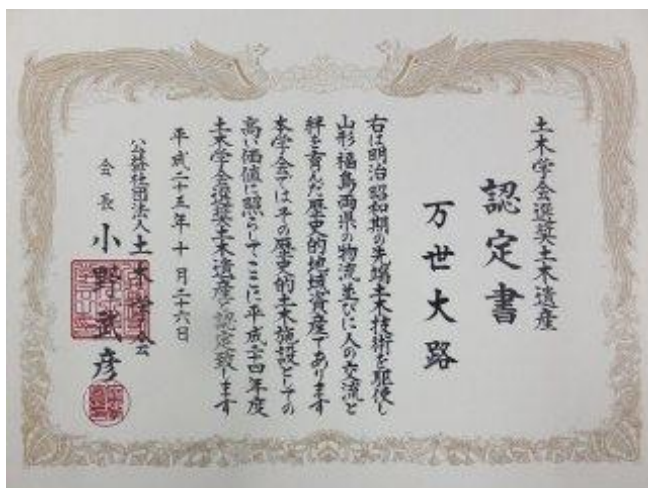 土木学会選奨土木遺産
認定書
万世大路
右は明治昭和期の先端土木技術を駆使し
山形福島両県の物流並びに人の交流と
絆を育んだ歴史的地域資産であります
本学会ではその歴史的土木施設としての
高い価値に照らしてここに平成二十四年度
土木学会選奨土木遺産と認定致します
平成二十五年十月二十六日
公益社団法人土木学会
会長 小野武彦